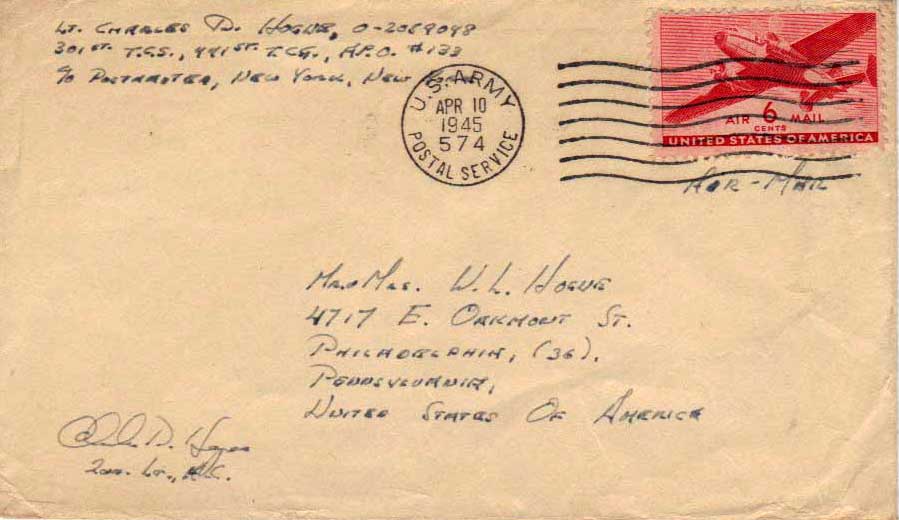 Lt. Charles D. Hogue, O-2069098
301st. T.C.S., 441st. T.C.G., A.P.O. #133
c/o Postmaster, New York, New York
U.S. ARMY
APR 10
1945
574
POSTAL SERVICE
AIR 6 MAIL
CENTS
UNITED STATES OF AMERICA
Air-Mail
Mr. & Mrs. W. L. Hogue
4717 E. Oakmont St.
Philadelphia, (36).
Pennsylvania,
United States Of America
Charles D. Hogue
2nd. Lt., A.C.